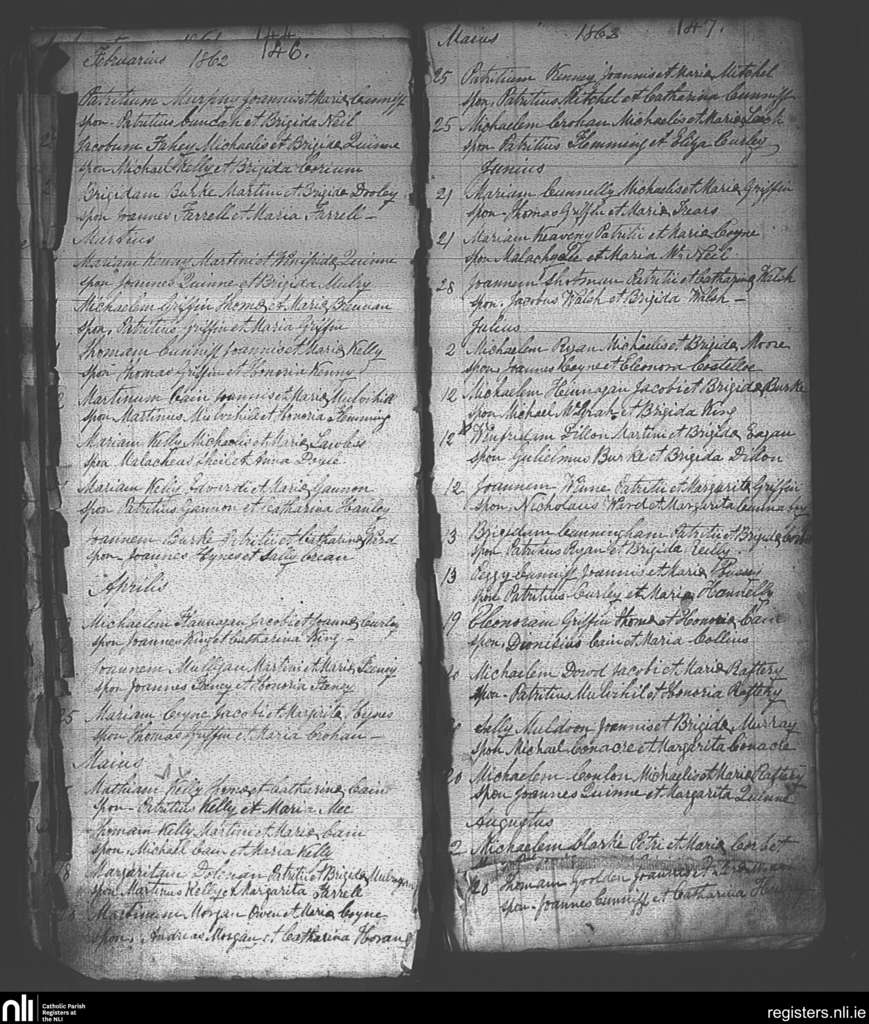 Februarius 1862 146.
Patritium Murphy Joannis et Maria Cunniff
spon. Patritius et Brigida Neil
Jacobum Fahey Michaelis et Brigida Quinne
spon Michael Kelly et Brigida
Brigidam Burke Martini et Brigida Dooley
spon Joannes Farrell et Maria Farrell
Martius
Mariam Kenny Martini et Winifrida Quinne
spon Joannes Quinne et Brigida Mulry
Michaelem Griffin Thoma et Maria Brennan
spon. Patritius Griffin et Maria Griffin
Thomam Cunniff Joannis et Maria Kelly
spon Thomas Griffin et Honoria Kenny
Martinum Cain Joannis et Maria Mulvihil
spon Martinus Mulvihil et Honoria Flemming
Mariam Kelly Michaelis et Maria
spon Malacheus Sheil et Anna Doyle
Mariam Kelly et Maria Gannon
spon Patritius Gannon et Catharina Hanley
Joannem Burke Patritii et Catharina Ward
spon Joannes Hynes et Sally Crean
Aprilis
Michaelem Flannagan Jacobi et Joanna Curley
spon Joannes King et Catharina King
Joannem Mulligan Martini et Maria Feeney
spon Joannes Feeney et Honoria Feeney
25 Mariam Coyne Jacobi et Margarita Hynes
spon Thomas Griffin et Maria Crohan
Maius
Mathiam Kelly Thoma et Catharina Cain
spon Patritius Kelly et Maria Mee
Thomam Kelly Martini et Maria Cain
spon. Michael Cain et Maria Kelly
Margaritam Dolenan Patritii et Brigida
spon Martinus Kelly et Margarita Farrell
Martinum Morgan Owen et Maria Coyne
spon. Andreas Morgan et Catharina Horan
Maius 1862 147.
25 Patritium Kenney Joannis et Maria Mitchel
spon. Patritius Mitchel et Catharina Cunniff
25 Michaelem Crohan Michaelis et Maria
spon Patritius Flemming et Eliza Curley
Junius
21 Mariam Cunnelly Michaelis et Maria Griffin
spon. Thomas Griffin et Maria
21 Mariam Keaveny Patritii et Maria Coyne
spon Malachy et Maria McNeil
28 Joannem Patritii et Catharina Walsh
spon. Jacobus Walsh et Brigida Walsh
Julius
2 Michaelem Ryan Michaelis et Brigida Moore
spon. Joannes Coyne et Eleonora Costelloe
12 Michaelem Jacobi et Brigida Burke
spon. Michael McGrah et Brigida King
12 Winfridam Dillon Martini et Brigida Eagan
spon Gulielmus Burke et Brigida Dillon
12 Joannem Winne Patritii et Margarita Griffin
spon. Nicholaus Ward et Margarita
13 Brigidam Cunningham Patritii et Brigida
spon Patritius Ryan et Brigida Reilly
13 Peggy Cunniff Joannis et Maria
spon Patritius Curley et Maria Hannelly
19 Eleonoram Griffin Thoma et Honoria Cain
spon. Dionisius Cain et Maria Collins
Michaelem Dowd Jacobi et Maria Raftery
spon. Patritius Mulvihil et Honoria Raftery
Sally Muldoon Joannis et Brigida Murray
spon Michael Conacre et Margarita Conacre
20 Michaelem Conlon Michaelis et Maria Raftery
spon Joannes Quinne et Margarita Quinne
Augustus
2 Michaelem Clarke Petri et Maria Corbet
20 Thomam Goolden Joannis et
spon. Joannes Cunniff et Catharina
nli Catholic Parish
Registers at
the NLI
registers.nli.ie